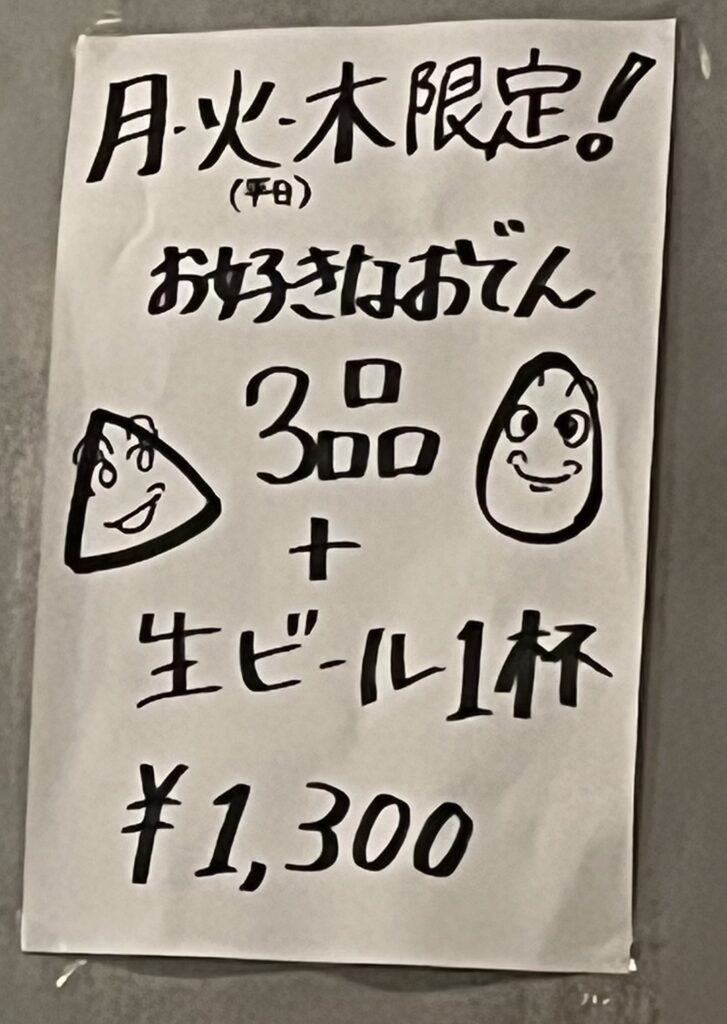 月・火・木限定!
(平日)
お好きなおでん
3品
+
生ビール1杯
¥1,300